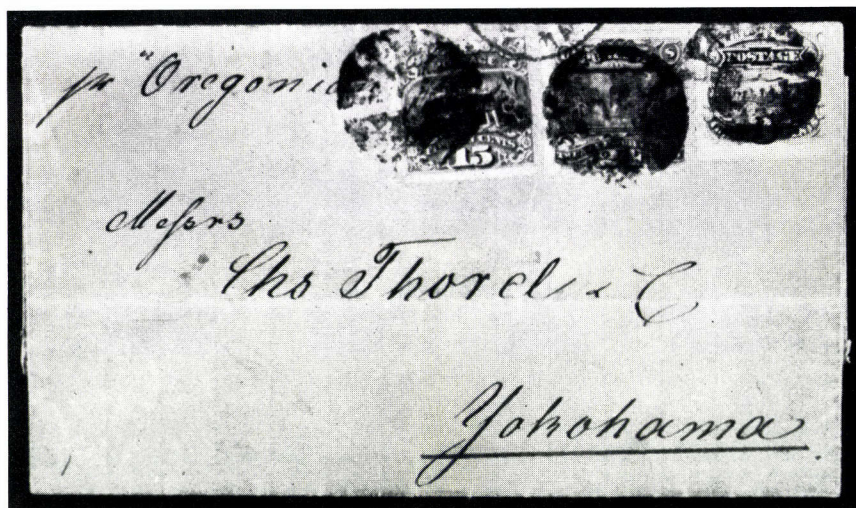 pr "Oregonia
POSTAGE
15
2
Messrs
Chs Thorel & C
Yokohama